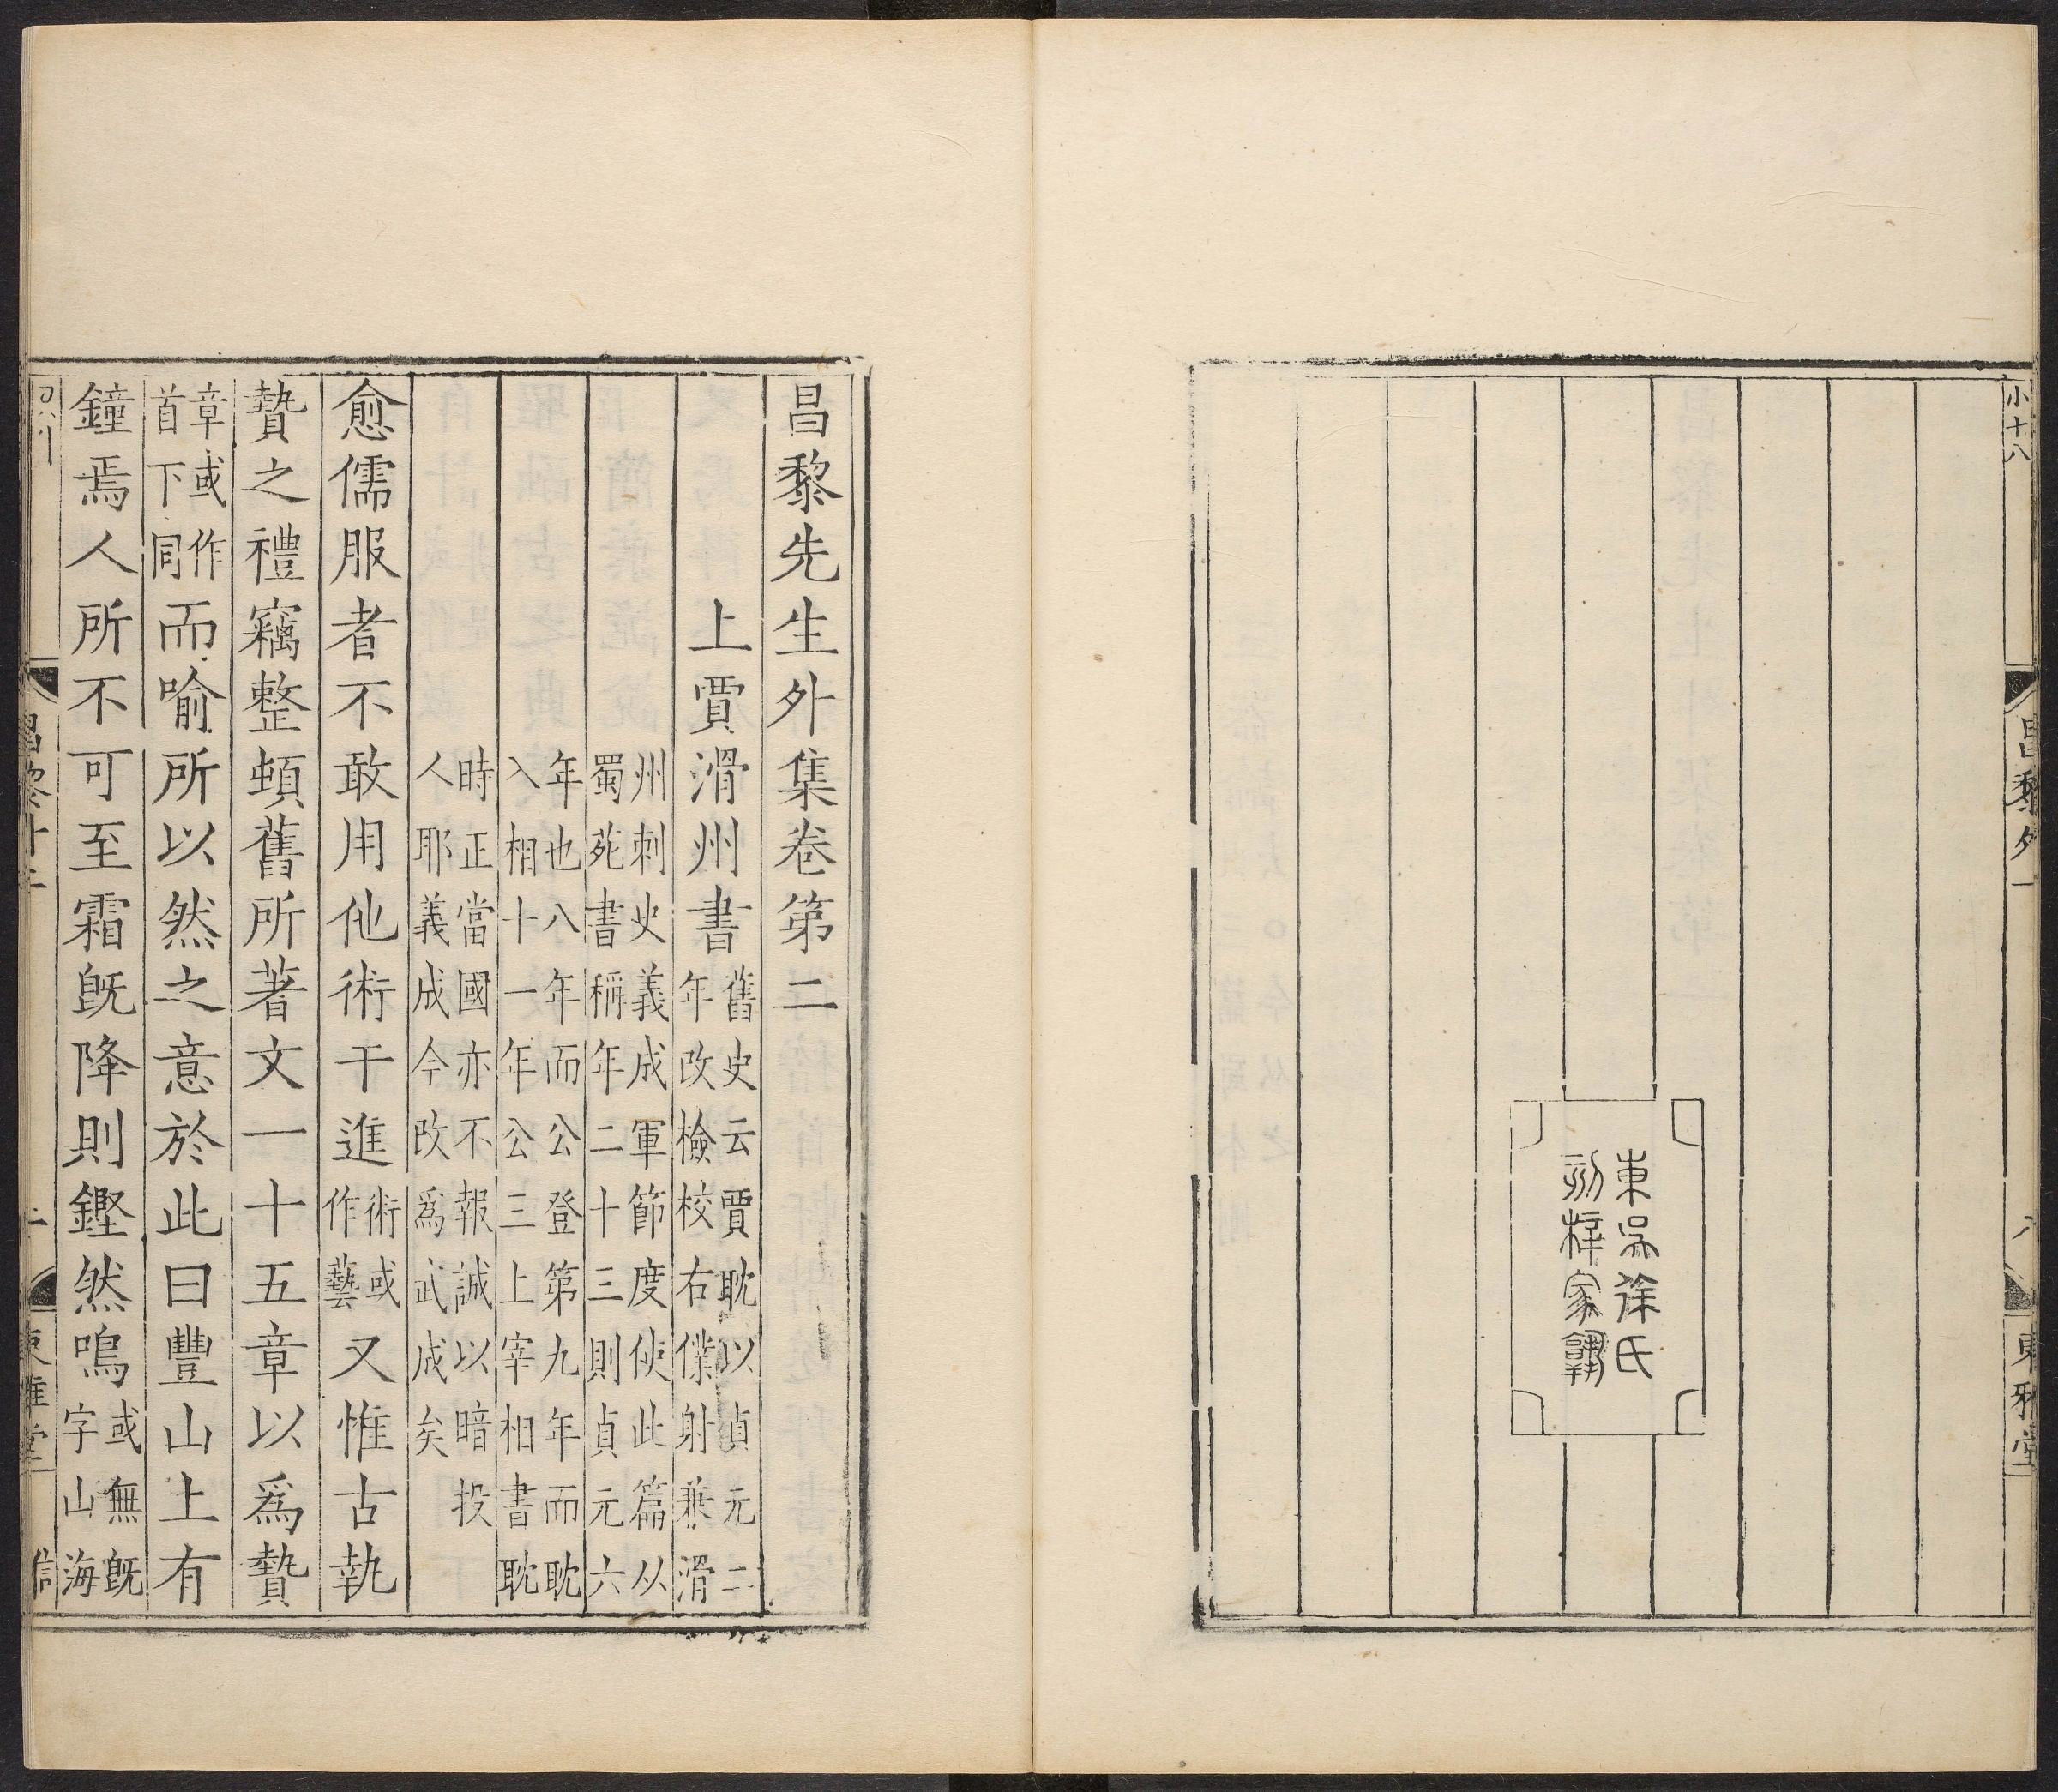 小十八
昌黎外一
六
東雅堂
東吳徐氏
刻梓家塾
昌黎先生外集卷第二
上賈滑州書
舊史云賈耽以貞元二
年改檢校右僕射兼滑
州刺史義成軍節度使此篇从
蜀苑書稱年二十三則貞元六
年也八年而公登第九年而耽
入相十一年公三上宰相書耽
時正當國亦不報誠以暗投
人耶義成今改爲武成矣
愈儒服者不敢用他術干進
術或
作藝
又惟古執
贄之禮竊整頓舊所著文一十五章以爲贄
章或作
首下同
而喻所以然之意於此曰豐山上有
鐘焉人所不可至霜旣降則鏗然鳴
或無旣
字山海
東雅堂
信